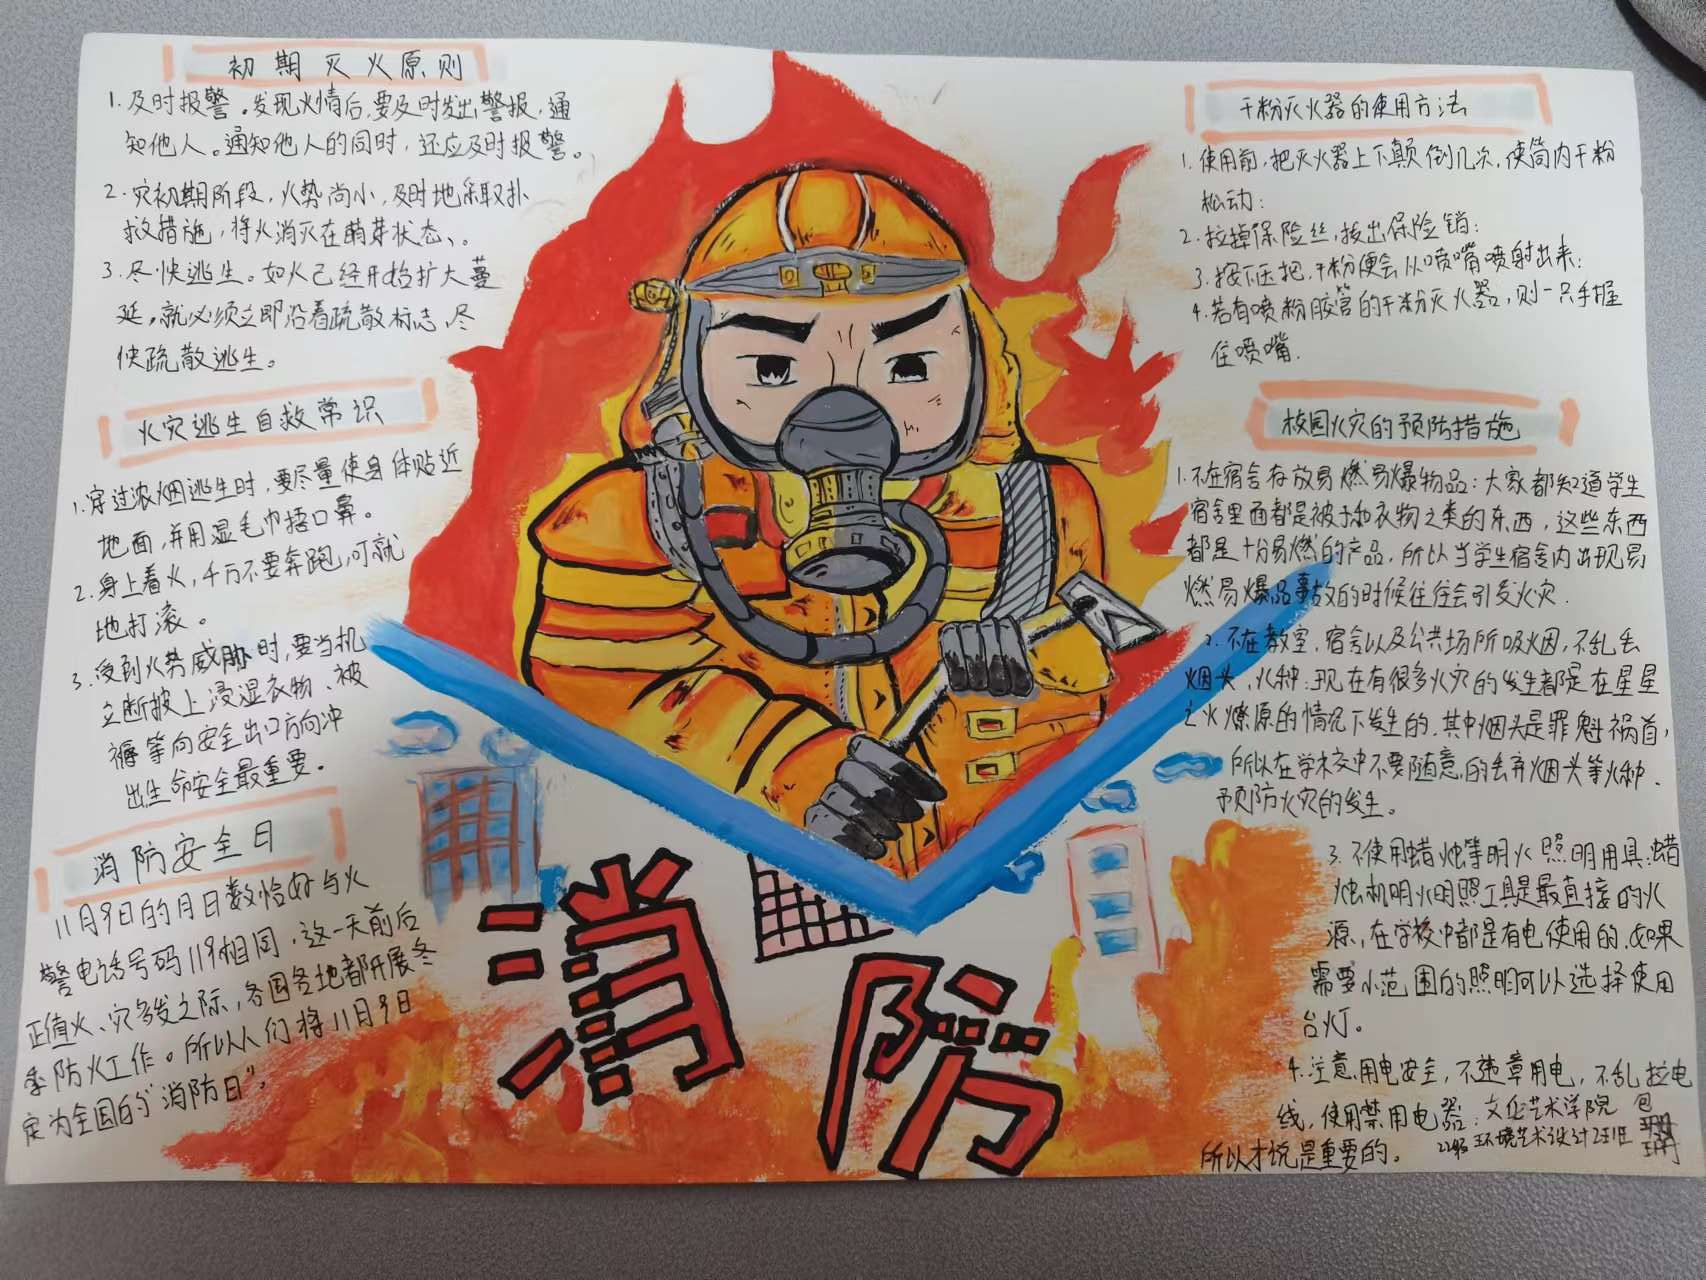 初期灭火原则
1.及时报警。发现火情后,要及时发出警报,通
知他人。通知他人的同时,还应及时报警。
2.灾初期阶段,火势尚小,及时地采取扑
救措施,将火消灭在萌芽状态、。
3.尽快逃生。如火已经开始扩大蔓
延,就必须立即沿着疏散标志、尽
快疏散逃生。
火灾逃生自救常识
1.穿过浓烟逃生时,要尽量使身体贴近
地面,并用湿毛巾捂口鼻。
2.身上着火,千万不要奔跑,可就
地打滚。
3.受到火势威胁时,要当机
立断披上浸湿衣物、被
褥等向安全出口方向冲
出生命安全最重要。
消防安全日
11月9日的月日数恰好与火
警电话号码119相同,这一天前后
正值火、灾多发之际,各国各地都开展冬
季防火工作。所以人们将11月9日
定为全国的“消防日”.
消防
干粉灭火器的使用方法
1.使用前,把灭火器上下颠倒几次,使筒内干粉
松动:
2.拉掉保险丝,拔出保险销:
3.按下压把,干粉便会从喷嘴喷射出来:
4.若有喷粉胶管的干粉灭火器,则一只手握
住喷嘴.
校园火灾的预防措施
1.不在宿舍存放易燃易爆物品:大家都知道学生
宿舍里面都是被子和衣物之类的东西,这些东西
都是十分易燃的产品,所以当学生宿舍内出现易
燃易爆品事故的时候往往会引发火灾.
2.不在教室,宿舍以及公共场所吸烟,不乱丢
烟头、火种:现在有很多火灾的发生都是在星星
之火燎原的情况下发生的,其中烟头是罪魁祸首,
所以在学校中不要随意的丢弃烟头等火种.
予预防火灾的发生。
3.不使用蜡烛等明火照明用具:蜡
烛机明火明照工具是最直接的火
源,在学校中都是有电使用的,如果
需要小范围的照明可以选择使用
台灯。
4.注意用电安全,不违章用电,不乱拉电
线,使用禁用电器:
所以才说是重要的。
文化艺术学院 包
22级环境艺术设计2班